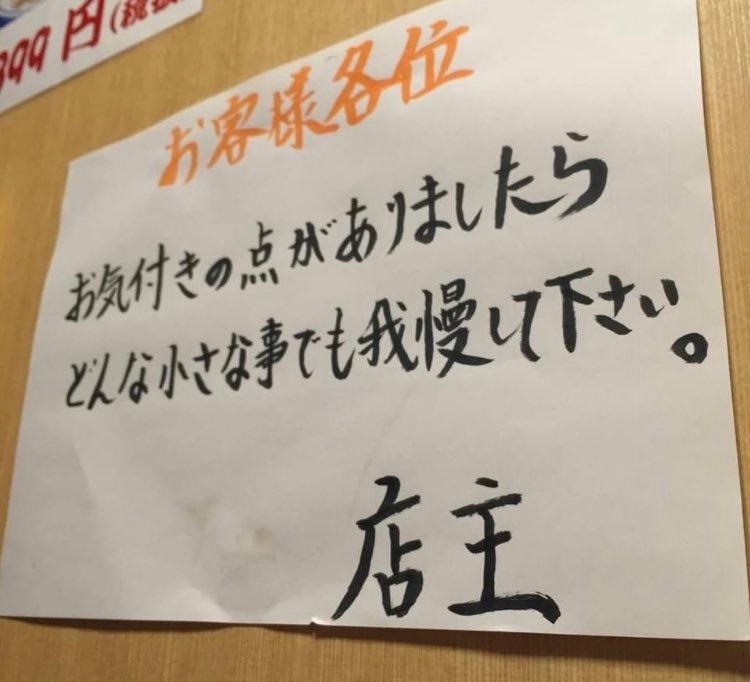 399円(税抜
お客様各位
お気付きの点がありましたら
どんな小さな事でも我慢して下さい。
店主